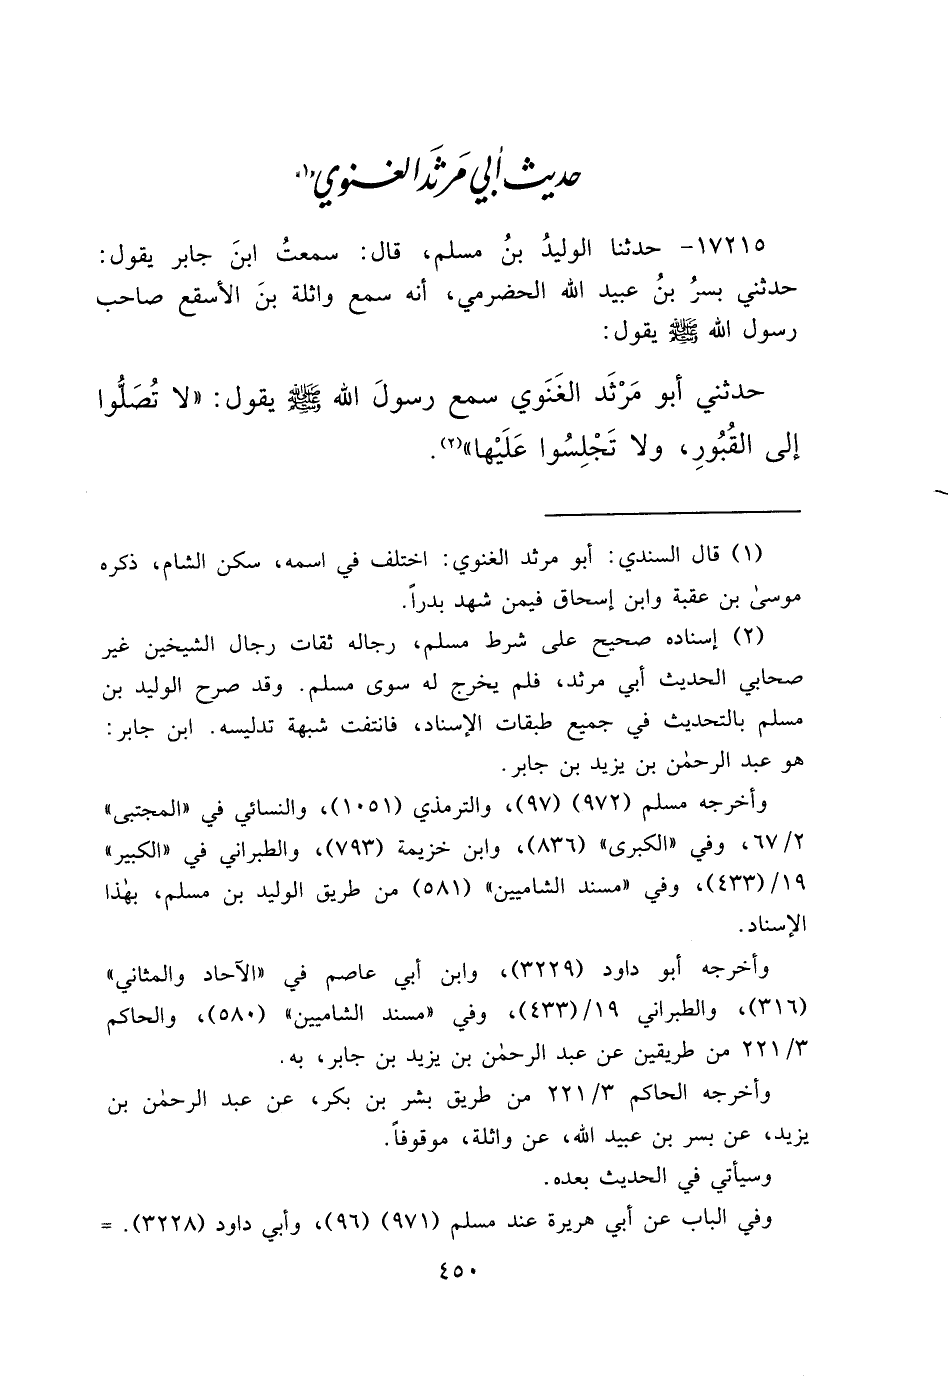 حديث أبي مَرثَد الغنوي(١)
١٧٢١٥- حدثنا الوليدُ بنُ مسلم، قال: سمعتُ ابنَ جابر يقول:
حدثني بسرُ بنُ عبيد الله الحضرمي، أنه سمع واثلة بنَ الأسقع صاحب
رسول الله ﷺ يقول:
حدثني أبو مَرْثَد الغَنَوي سمع رسولَ الله ﷺ يقول: «لا تُصَلُّوا
إلى القُبُورِ، ولا تَجْلِسُوا عَلَيْها»(٢).
(١) قال السندي: أبو مرثد الغنوي: اختلف في اسمه، سكن الشام، ذكره
موسىٰ بن عقبة وابن إسحاق فيمن شهد بدراً.
(٢) إسناده صحيح على شرط مسلم، رجاله ثقات رجال الشيخين غير
صحابي الحديث أبي مرثد، فلم يخرج له سوى مسلم. وقد صرح الوليد بن
مسلم بالتحديث في جميع طبقات الإسناد، فانتفت شبهة تدليسه. ابن جابر:
هو عبد الرحمٰن بن يزيد بن جابر.
وأخرجه مسلم (٩٧٢) (٩٧)، والترمذي (١٠٥١)، والنسائي في «المجتبى»
٦٧/٢، وفي «الكبرى» (٨٣٦)، وابن خزيمة (٧٩٣)، والطبراني في «الكبير»
١٩/(٤٣٣)، وفي «مسند الشاميين» (٥٨١) من طريق الوليد بن مسلم، بهٰذا
الإسناد.
وأخرجه أبو داود (٣٢٢٩)، وابن أبي عاصم في «الآحاد والمثاني»
(٣١٦)، والطبراني ١٩/(٤٣٣)، وفي «مسند الشاميين» (٥٨٠)، والحاكم
٢٢١/٣ من طريقين عن عبد الرحمٰن بن يزيد بن جابر، به.
وأخرجه الحاكم ٢٢١/٣ من طريق بشر بن بكر، عن عبد الرحمٰن بن
يزيد، عن بسر بن عبيد الله، عن واثلة، موقوفاً.
وسيأتي في الحديث بعده.
وفي الباب عن أبي هريرة عند مسلم (٩٧١) (٩٦)، وأبي داود (٣٢٢٨). =
٤٥٠